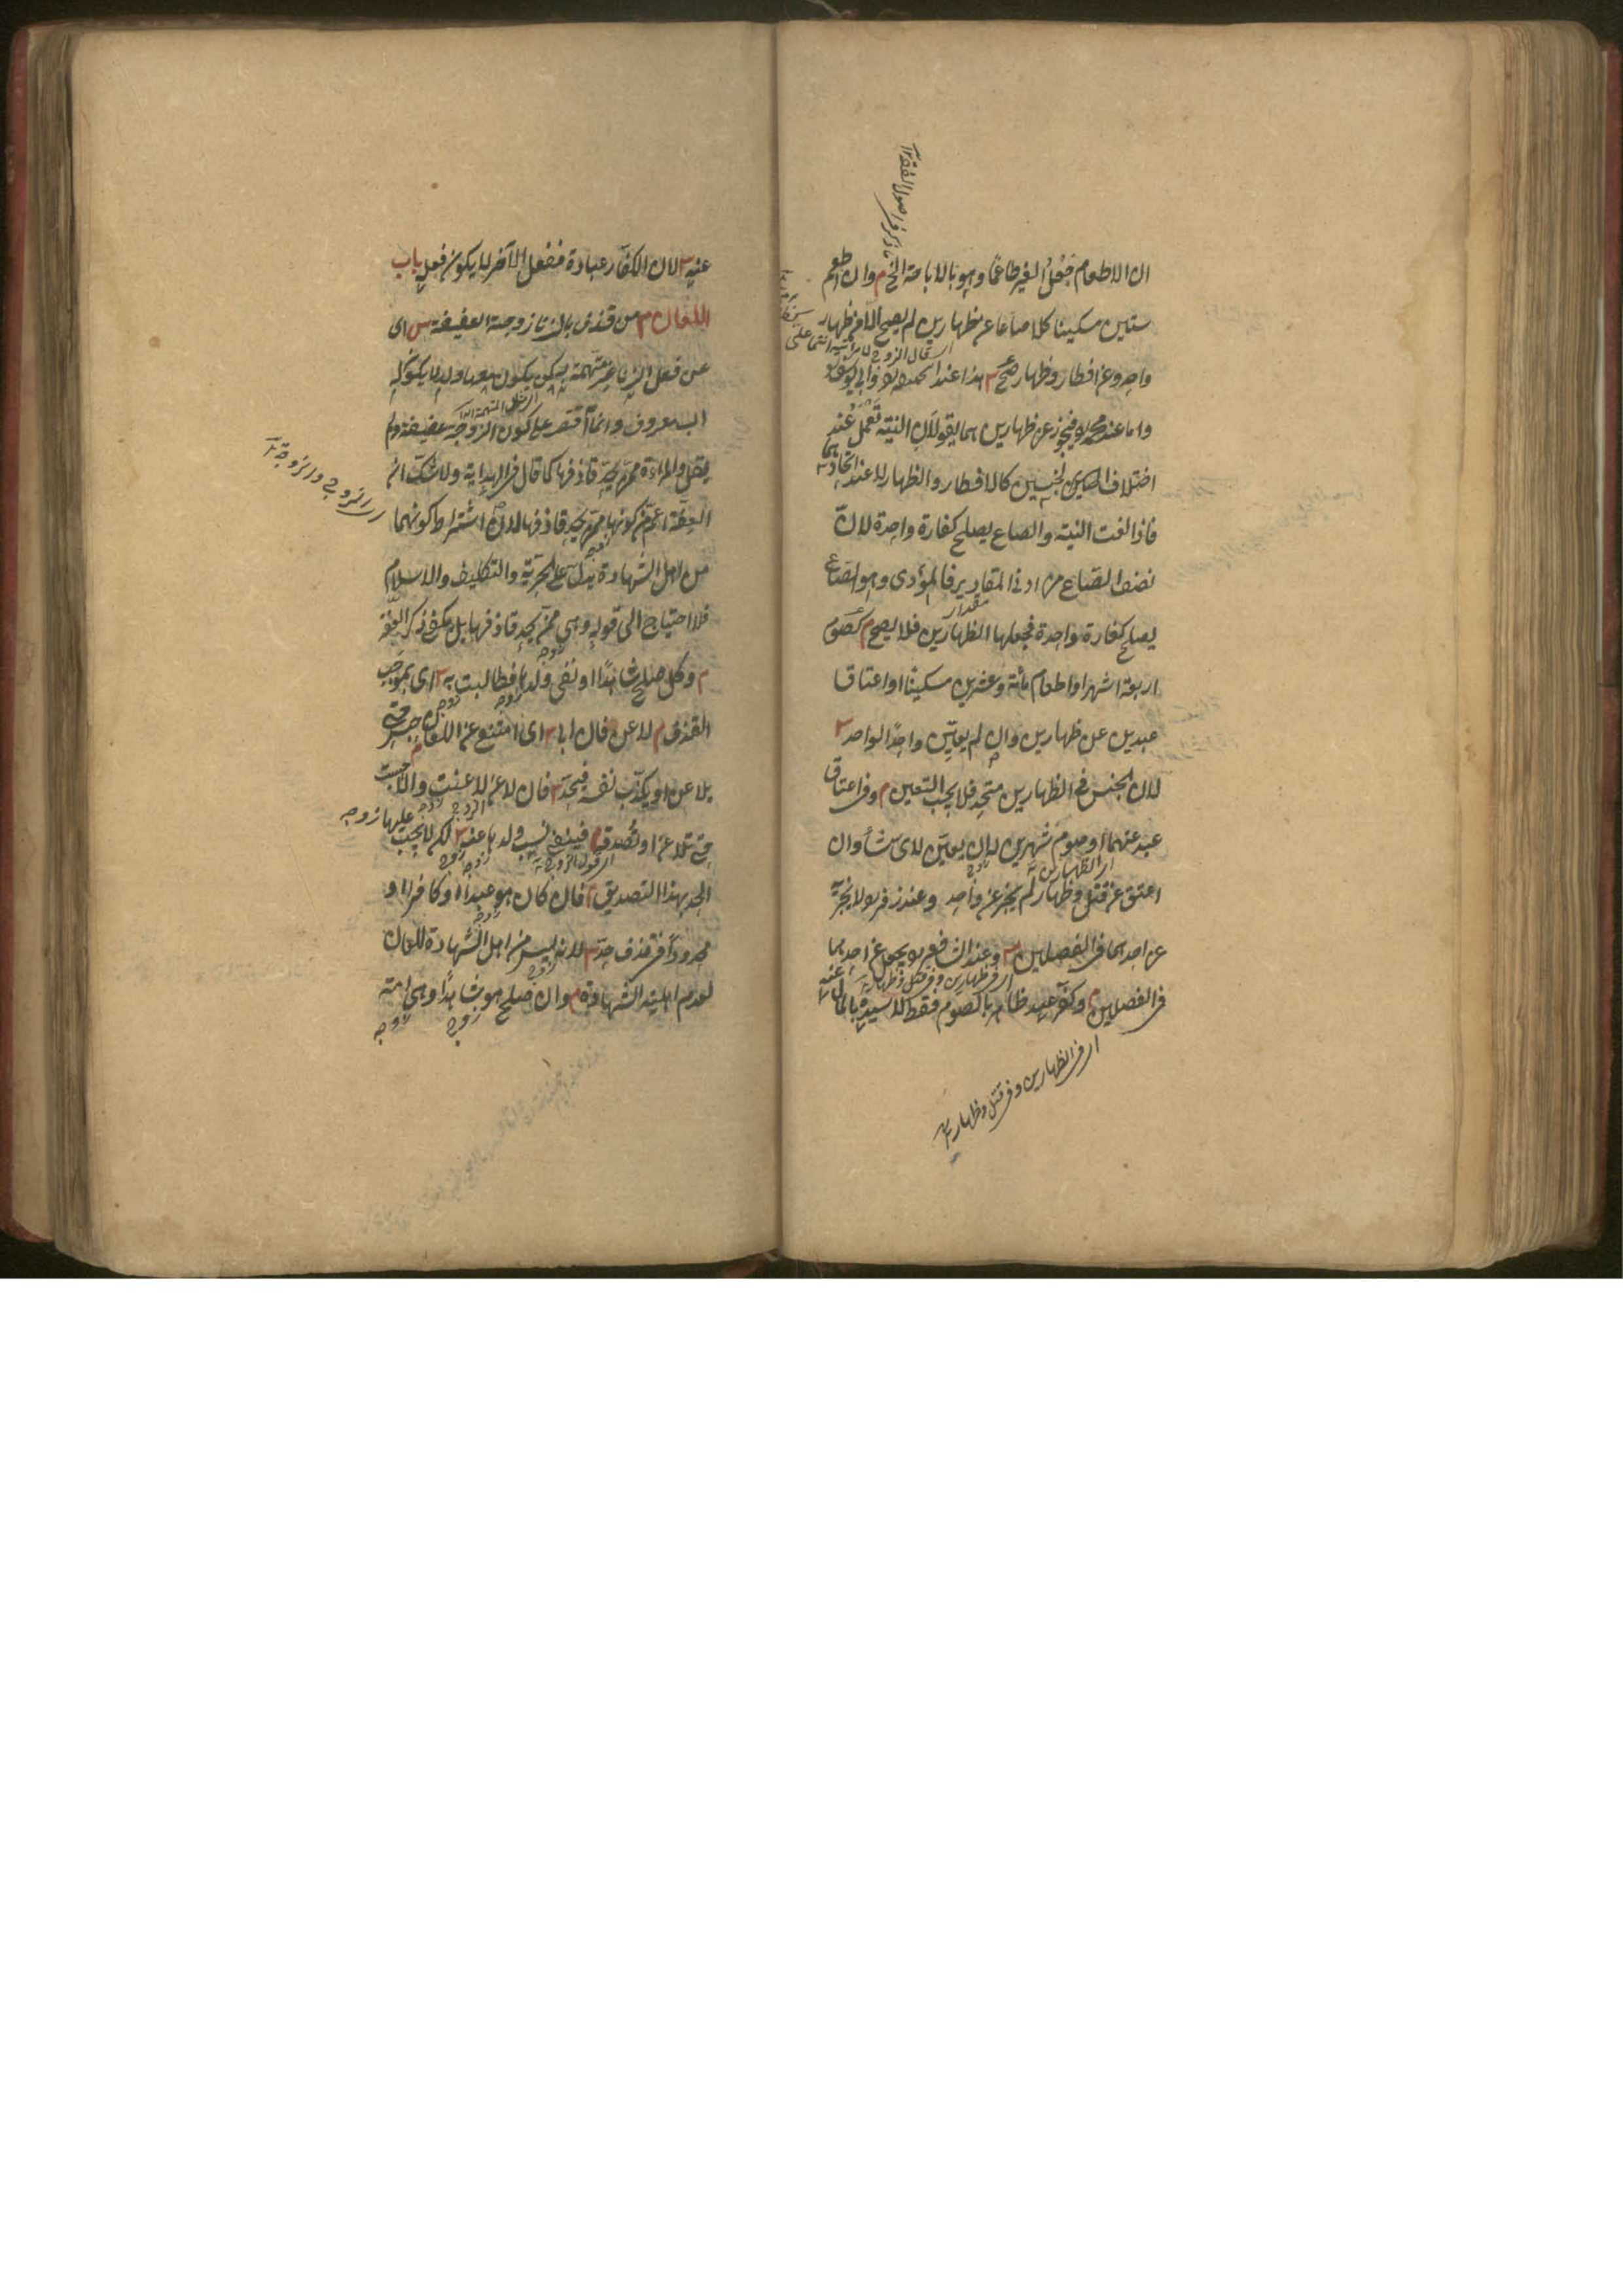 ان الاطعام جَعْلُ الغير طاعمًا وهو بالاباحة الخ م وان اطعم
ستين مسكينا كلا صاعا عن ظهارين لم يصح الا عن ظهار
واحد وعن افطار وظهار صح س هذا عند ابي حنيفة وابي يوسف
واما عند محمد يجوز عن ظهارين هما يقولان النية تعمل عند
اختلاف الجنسين كالافطار والظهار لا عند اتحادهما
فاذا لغت النية والصاع يصلح كفارة واحدة لان
نصف الصاع من ادنى المقادير فالمؤدى وهو الصاع
يصلح كفارة واحدة فجعلها للظهارين فلا يصح م كصوم
اربعة اشهر او اطعام مائة وعشرين مسكينا او اعتاق
عبدين عن ظهارين وان لم يعين واحدًا لواحد س
لان الجنس في الظهارين متحد فلا يجب التعيين م وفي اعتاق
عبد عنهما او صوم شهرين له ان يعين لاى شاء وان
اعتق عن قتل وظهار لم يجز عن واحد وعند زفر لا يجزيه
عن احدهما في الفصلين س وعند الشافعي يجعل عن احدهما
في الفصلين م وكفر عبد ظاهر بالصوم فقط لا سيده بالمال عنه
اى في الظهارين وفي قتل وظهار
عنه س لان الكفارة عبادة ففعل الآخر لا يكون فعله باب
اللعان م من قذف بالزنا زوجته العفيفة س اى
عن فعل الزنا غير متهمة به كمن يكون معها ولد لا يكون له
اب معروف وانما اقتصر على كون الزوجة عفيفة ولم
يقل والمرأة ممن يحد قاذفها كما قال في الهداية ولا شك ان
العفة اعم من كونها ممن يحد قاذفها لان اشتراط كونهما
من اهل الشهادة يدل على الحرية والتكليف والاسلام
فلا احتياج الى قوله وهي ممن يحد قاذفها بل يكفي ذكر العفة
م وكل صلح شاهدًا او نفى ولدها فطالبت به س اى بموجب
القذف م لاعن فان ابى س اى امتنع عن اللعان م حبس حتى
يلاعن او يكذب نفسه فيحد م فان لاعن لاعنت والا حبست
حتى تلاعن او تصدقه فينفى نسب ولدها عنه س لكن لا يجب عليها
الحد بهذا التصديق م فان كان هو عبدًا او كافرا او
محدودًا في قذف حد س لانه ليس من اهل الشهادة للعان
لعدم اهلية الشهادة م وان صلح هو شاهدًا وهي امة
اى الزوج والزوجة